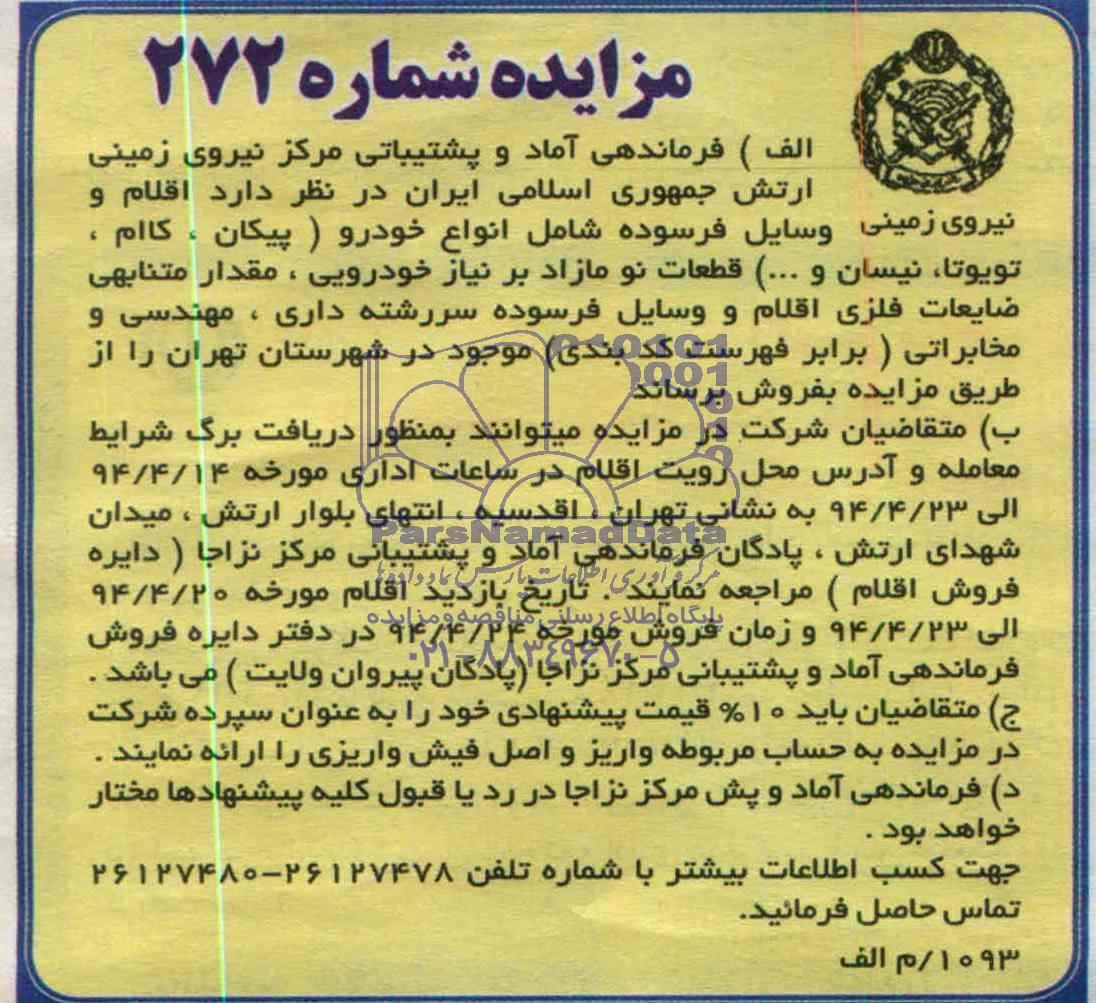 مزایده شماره ۲۷۲
الف ) فرماندهی آماد و پشتیباتی مرکز نیروی زمینی
ارتش جمهوری اسلامی ایران در نظر دارد اقلام و
نیروی زمینی
وسایل فرسوده شامل انواع خودرو ( پیکان ، کاام ،
تویوتا، نیسان و ...) قطعات نو مازاد بر نیاز خودرویی ، مقدار متنابهی
ضایعات فلزی اقلام و وسایل فرسوده سررشته داری ، مهندسی و
مخابراتی ( برابر فهرست کد بندی) موجود در شهرستان تهران را از
طریق مزایده بفروش برساند
ب) متقاضیان شرکت در مزایده میتوانند بمنظور دریافت برگ شرایط
معامله و آدرس محل رویت اقلام در ساعات اداری مورخه ۹۴/۴/۱۴
الی ۹۴/۴/۲۳ به نشانی تهران ، اقدسیه ، انتهای بلوار ارتش ، میدان
شهدای ارتش ، پادگان فرماندهی آماد و پشتیبانی مرکز نزاجا ( دایره
فروش اقلام ) مراجعه نمایند . تاریخ بازدید اقلام مورخه ۹۴/۴/۲۰
الی ۹۴/۴/۲۳ و زمان فروش مورخه ۹۴/۴/۲۴ در دفتر دایره فروش
فرماندهی آماد و پشتیبانی مرکز نزاجا (پادگان پیروان ولایت ) می باشد .
ج) متقاضیان باید ۱۰% قیمت پیشنهادی خود را به عنوان سپرده شرکت
در مزایده به حساب مربوطه واریز و اصل فیش واریزی را ارائه نمایند .
د) فرماندهی آماد و پش مرکز نزاجا در رد یا قبول کلیه پیشنهادها مختار
خواهد بود .
جهت کسب اطلاعات بیشتر با شماره تلفن ۲۶۱۲۷۴۷۸-۲۶۱۲۷۴۸۰
تماس حاصل فرمائید.
۱۰۹۳/م الف
ParsNamadData
مرکز فرآوری اطلاعات پارس نماد داده‌ها
پایگاه اطلاع رسانی مناقصه و مزایده
۰۲۱-۸۸۳۴۹۶۷۰-۵